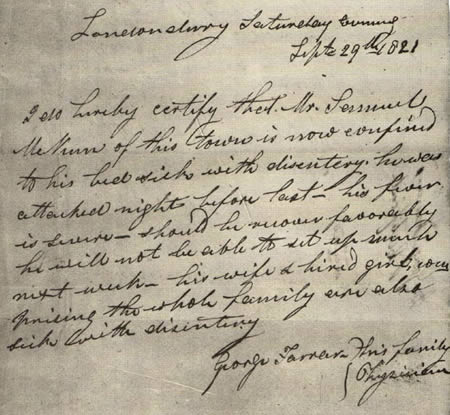 Londonderry Saturday Evening
Septr 29th 1821
I do hereby certify that Mr. Samuel
McKeen of this town is now confined
to his bed sick with disentery. he was
attacked night before last - his fever
is severe - should he recover favorably
he will not be able to set up much
next week - his wife & hired girl, com
prising the whole family are also
sick with disentery
George Farrar his family
Physician